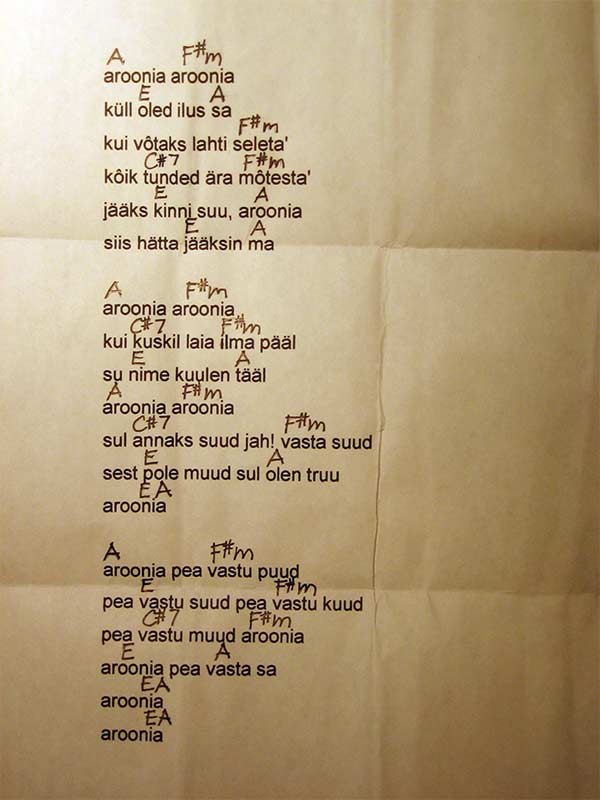 A F#m
aroonia aroonia
E A
küll oled ilus sa
F#m
kui vôtaks lahti seleta'
C#7 F#m
kôik tunded ära môtesta'
E A
jääks kinni suu, aroonia
E A
siis hätta jääksin ma
A F#m
aroonia aroonia
C#7 F#m
kui kuskil laia ilma pääl
E A
su nime kuulen tääl
A F#m
aroonia aroonia
C#7 F#m
sul annaks suud jah! vasta suud
E A
sest pole muud sul olen truu
E A
aroonia
A F#m
aroonia pea vastu puud
E F#m
pea vastu suud pea vastu kuud
C#7 F#m
pea vastu muud aroonia
E A
aroonia pea vasta sa
E A
aroonia
E A
aroonia